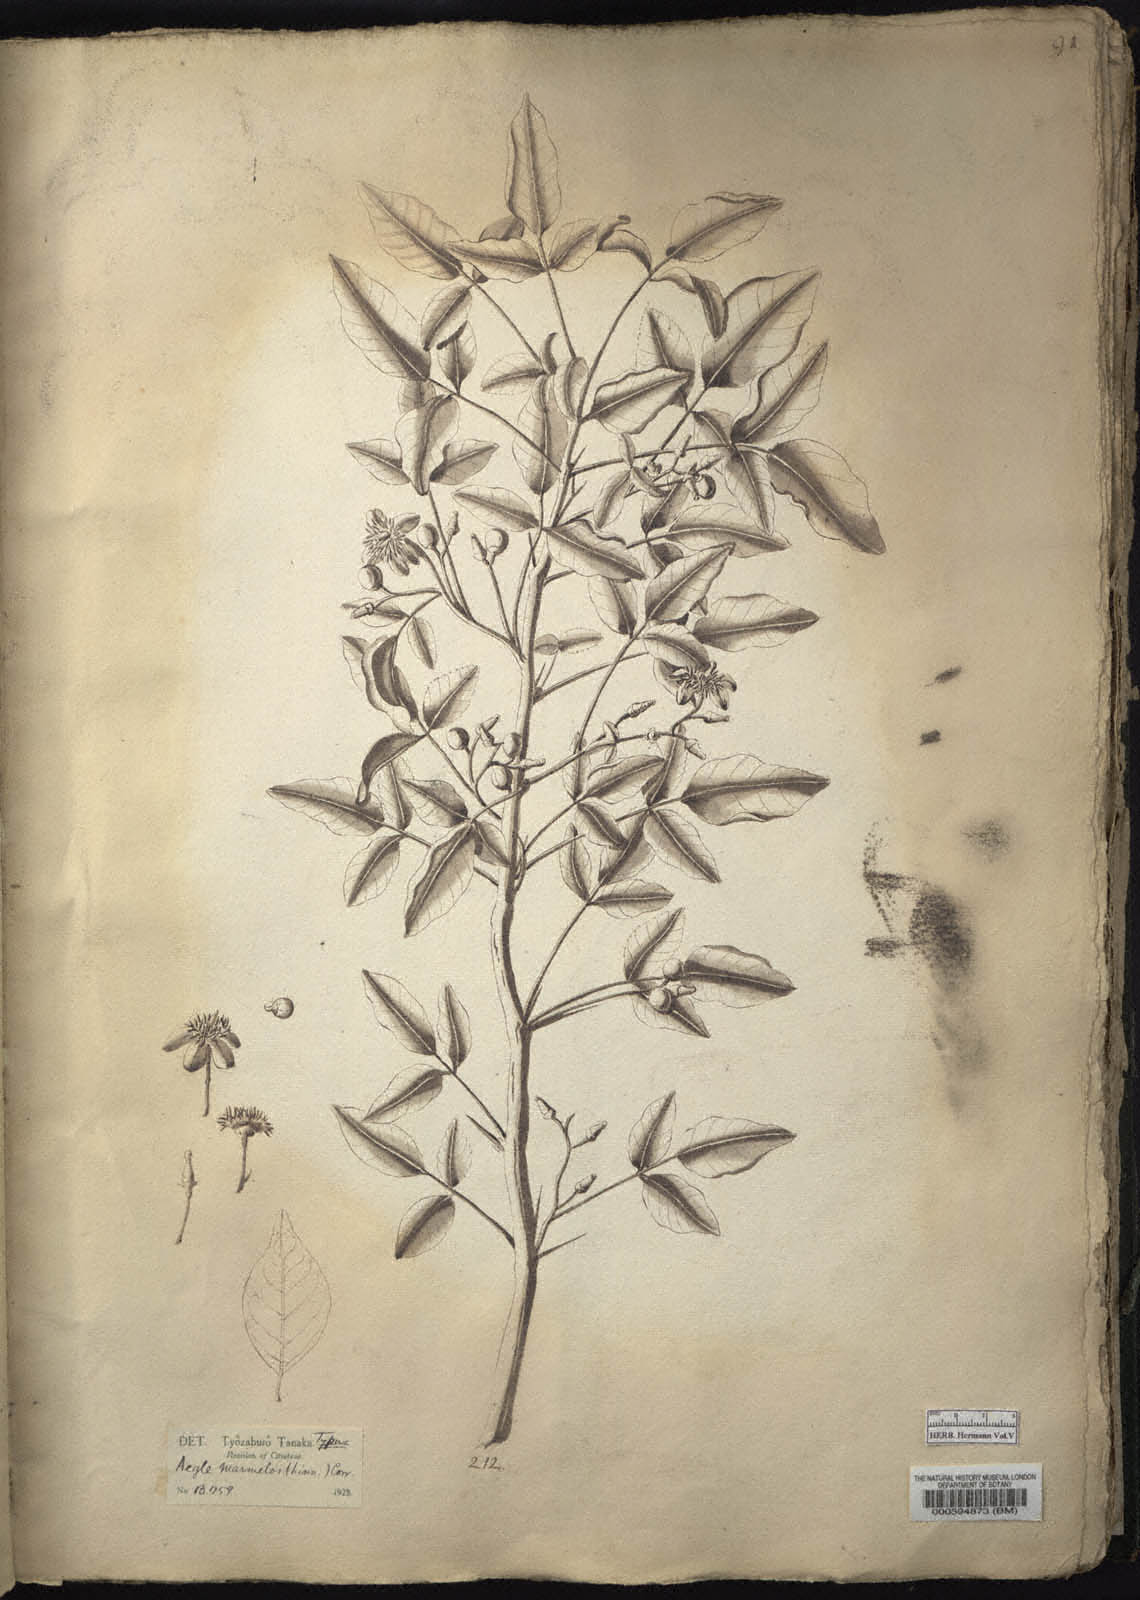 91
DET. Tyôzaburô Tanaka Typus
Revision of Citrateae
Aegle marmelos (Linn.) Corr.
No 13.759 1929
212.
HERB. Hermann Vol.V
THE NATURAL HISTORY MUSEUM, LONDON
DEPARTMENT OF BOTANY
000594873 (BM)